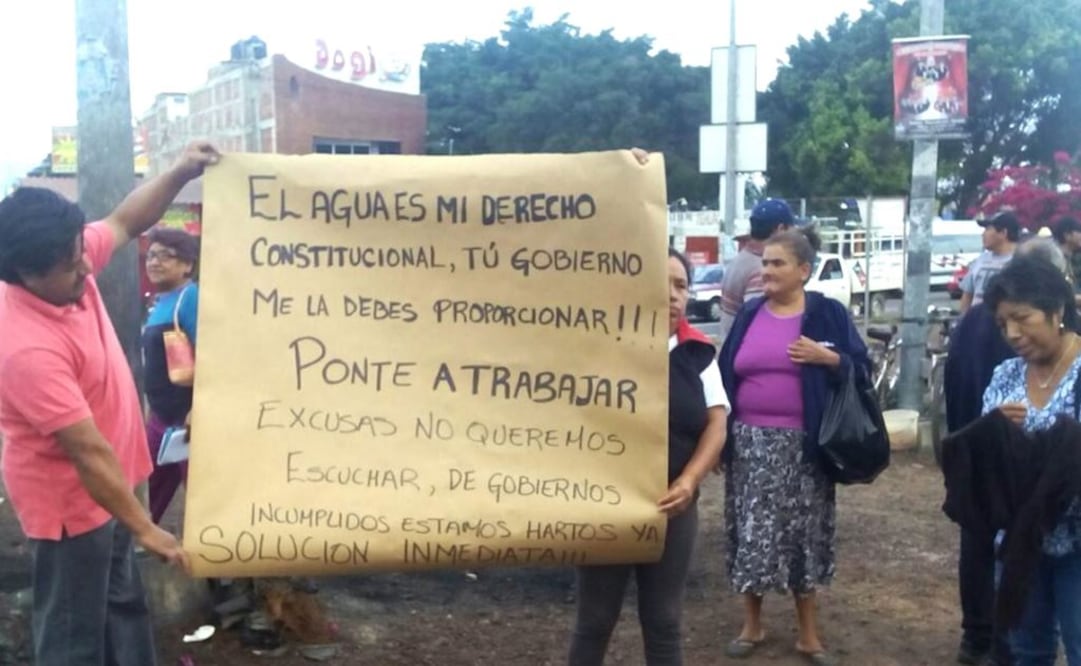 EL AGUA ES MI DERECHO
CONSTITUCIONAL, TÚ GOBIERNO
ME LA DEBES PROPORCIONAR!!!
PONTE A TRABAJAR
EXCUSAS NO QUEREMOS
ESCUCHAR, DE GOBIERNOS
INCUMPLIDOS ESTAMOS HARTOS YA
SOLUCION INMEDIATA!!!